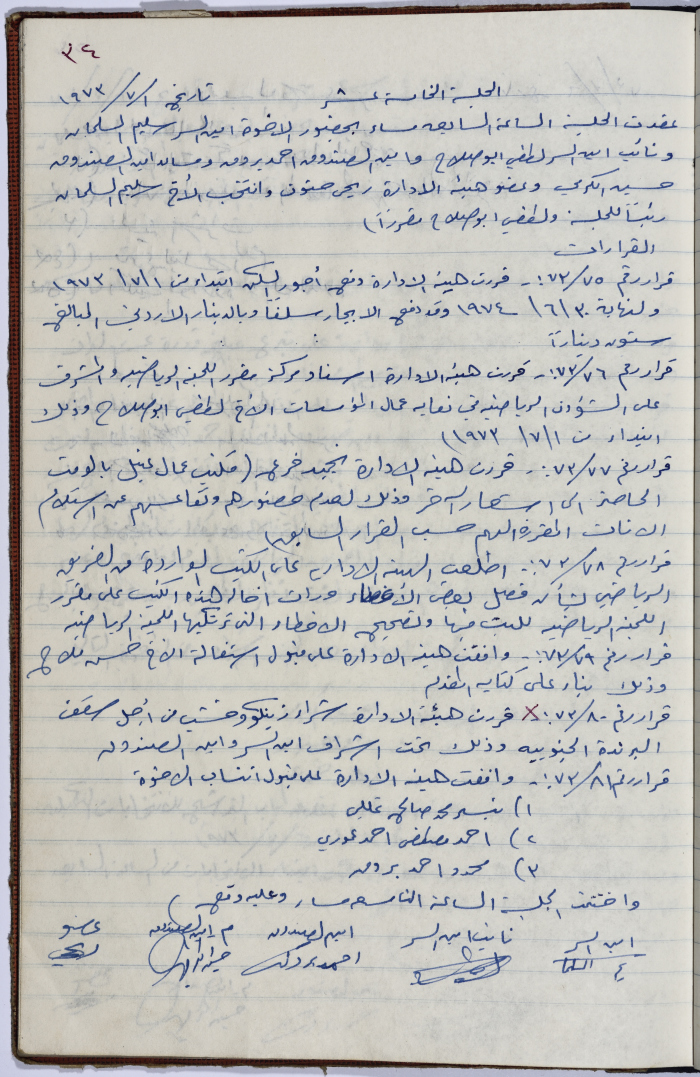 ٣٤
الجلسة الخامسة عشر تاريخ ١/٧/١٩٧٣
عقدت الجلسة الساعة السابعة مساء بحضور الاخوة امين السر سليم السلمان
ونائب امين السر لطفي ابوصلاح وامين الصندوق احمد برومه ومساعد امين الصندوق
حسين الكرمي وعضو هيئة الادارة ربحي وانتخب الأخ سليم السلمان
رئيساً للجلسة ولطفي ابوصلاح مقرراً)
القرارات
قرار رقم ٧٣/٧٥:- قررت هيئة الادارة دفع أجور السكن ابتداء من ١/٧/١٩٧٣
ولنهاية ٣٠/٦/١٩٧٤ وقد دفع الايجار سلفاً وبالدينار الاردني المبالغ
ستون ديناراً
قرار رقم ٧٣/٧٦:- قررت هيئة الادارة اسناد مركز مقرر اللجنة الرياضية والمشرف
على الشؤون الرياضية في نقابة عمال المؤسسات الأخ لطفي ابوصلاح وذلك
ابتداء من ١/٧/١٩٧٣)
قرار رقم ٧٣/٧٧:- قررت هيئة الادارة تجميد فرع (مكتب عمال بالوقت
الحاضر الى اشعار آخر وذلك لعدم حضورهم وتقاعسهم عن استلام
الاثاث المقررة لهم حسب القرار السابق)
قرار رقم ٧٣/٧٨:- اطلعت الهيئة الادارية على الكتب الواردة من الفريق
الرياضي بشأن فصل بعض الأعضاء ورأت احالة هذه الكتب على مقرر
اللجنة الرياضية للبت فيها وتصحيح الاخطاء التي ترتكبها اللجنة الرياضية
قرار رقم ٧٣/٧٩:- وافقت هيئة الادارة على قبول استقالة الأخ حسن فلاح
وذلك بناء على كتابه المقدم
قرار رقم ٧٣/٨٠:× قررت هيئة الادارة شراء زينكو وخشب من أجل سقف
البرندة الجنوبيه وذلك تحت اشراف امين السر وامين الصندوق
قرار رقم ٧٣/٨١:- وافقت هيئة الادارة على قبول انتساب الاخوة
١) محمد صالح
٢) احمد مصطفى احمد
٣) احمد برومه
واختتمت الجلسة الساعة التاسعة مساء وعليه وقع)
امين السر نائب امين السر امين الصندوق م امين الصندوق عضو
احمد برومه